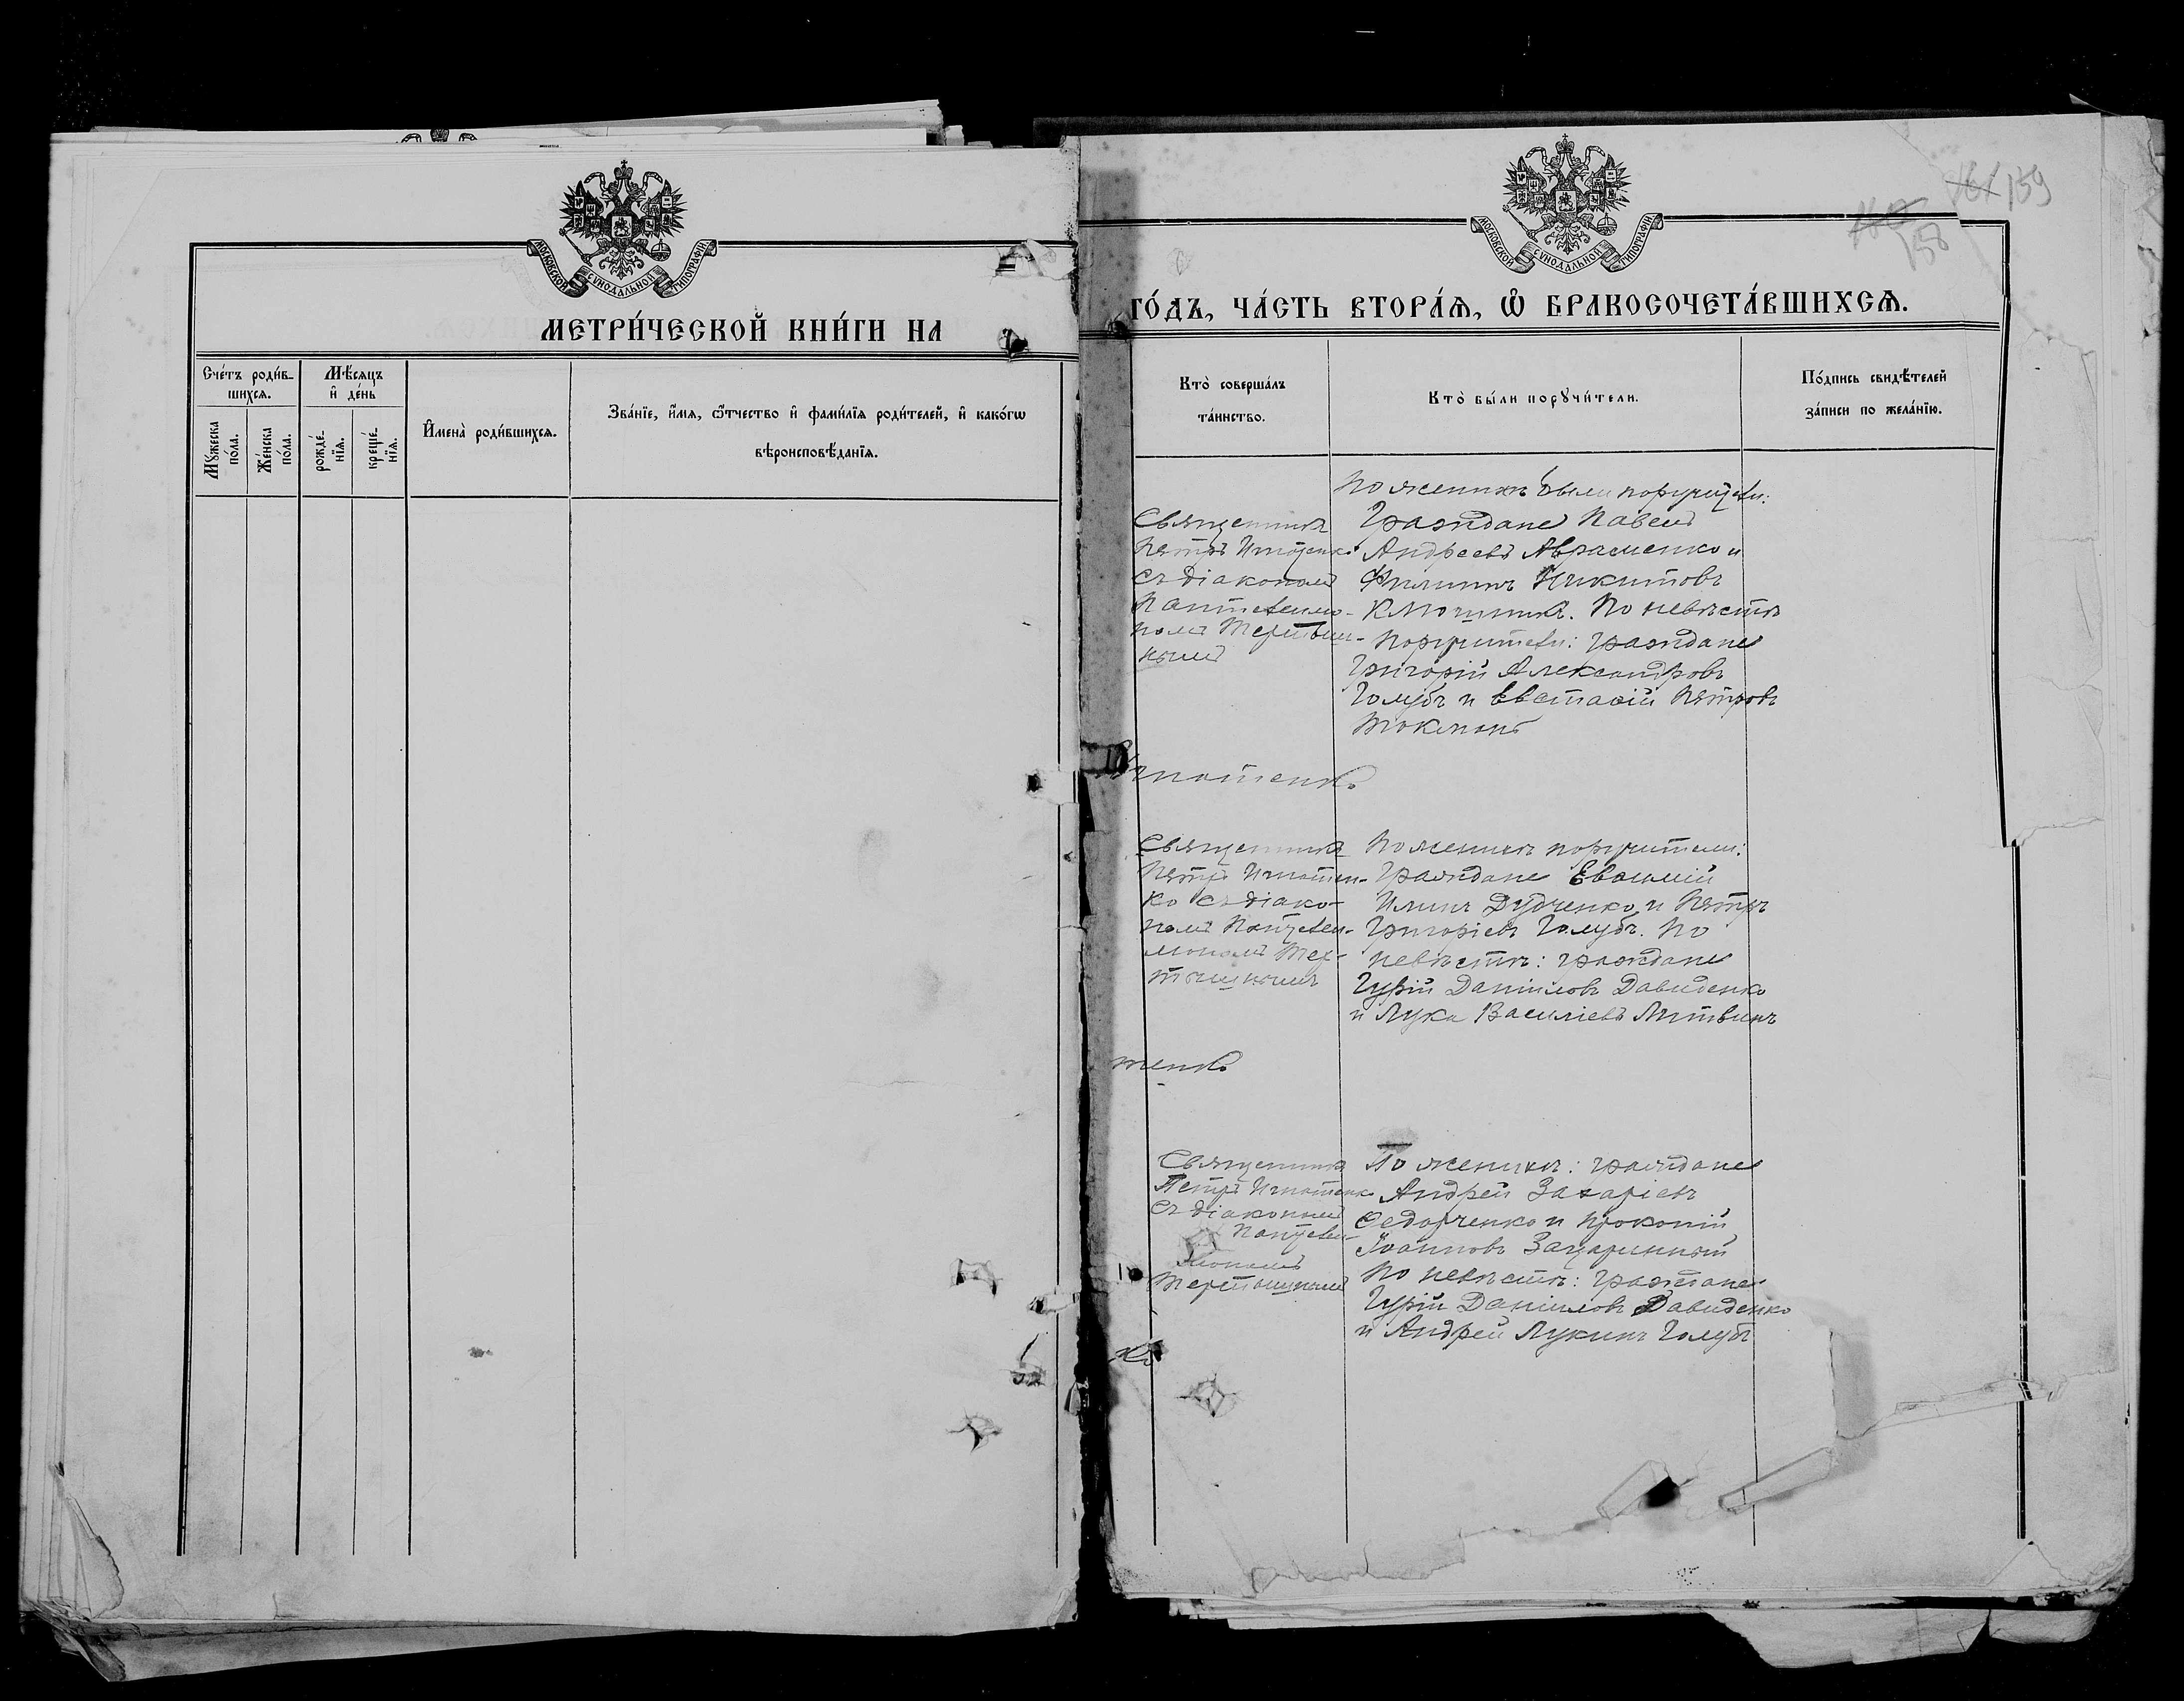 МОСКОВСКОЙ СѴНОДАЛЬНОЙ ТИПОГРАФІИ
МЕТРИ́ЧЕСКОЙ КНИ́ГИ НА
Сче́тъ роди́в-
шихсѧ.
Мѣ́сѧцъ
и҆ де́нь
Мꙋ́жеска
по́ла.
Же́нска
по́ла.
рожде́-
нїѧ.
креще́-
нїѧ.
И҆мена̀ роди́вшихсѧ.
Зва́нїе, и҆́мѧ, ѻ҆́тчество и҆ фами́лїѧ роди́телей, и҆ како́гѡ
вѣроисповѣ́данїѧ.
159
158
МОСКОВСКОЙ СѴНОДАЛЬНОЙ ТИПОГРАФІИ
ГО́ДЪ, ЧА́СТЬ ВТОРА́Ѧ, Ѡ҆ БРАКОСОЧЕТА́ВШИХСѦ.
Кто̀ соверша́лъ
та́инство.
Кто̀ бы́ли порꙋчи́тели.
По́дпись свидѣ́телей
за́писи по жела́нїю.
По женихѣ были поручители:
Священникъ
Петръ Игнатенко
съ діакономъ
Пантелеимо-
номъ Тертыш-
нымъ
Граждане Павелъ
Андреевъ Авраменко и
Филиппъ Никитовъ
Ключникъ. По невѣстѣ
поручители: граждане
Григорій Александровъ
Голубъ и Евстафій Петровъ
Игнатенко
Священникъ
Петръ Игнатен-
ко съ діако-
номъ Пантелеи-
мономъ Тер-
тышнымъ
По женихѣ поручители:
Граждане
Ильинъ Дудченко и Петръ
Григоріевъ Голубъ. По
невѣстѣ: граждане
Гурій Даниловъ Давиденко
и Лука Василіевъ Литвинъ
тенко
Священникъ
Петръ Игнатенко
съ діакономъ
Пантелеи-
мономъ
Тертышнымъ
По женихѣ: граждане
Андрей Захаріевъ
Федорченко и Прокопій
Іоанновъ
По невѣстѣ: граждане
Гурій Даниловъ Давиденко
и Андрей Лукинъ Голубъ
ко